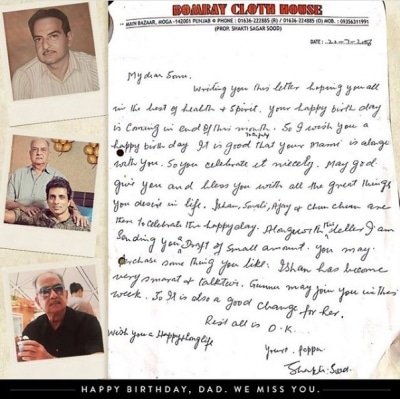 BOMBAY CLOTH HOUSE
MAIN BAZAAR, MOGA-142001 PUNJAB PHONE : 01636-224885 (R) / 01636-224885 (O) MOB. : 09356311991
(PROP. SHAKTI SAGAR SOOD)
DATE :
My dear Sonu.
Writing you this letter hoping you all
in the best of health & Spirit. your happy birth day
is Coming in end of this month. So I wish you a
30th July
happy birth day. It is good that your Mami is
with you. So you celebrate it nicely. May god
give you and bless you with all the great things
you desire in life. Ishan, Sonali, Ajay & chun chun are
there to celebrate the happy day. Alongwith this letter I am
Sending you Draft of Small amount. you may
Purchase some thing you like. Ishan has become
very smart & talktive. may join you in this
week. So It is also a good change for her.
Rest all is O.K.
Wish you a Happy & long life
yours. Pappa
Shakti Sood
HAPPY BIRTHDAY, DAD. WE MISS YOU.